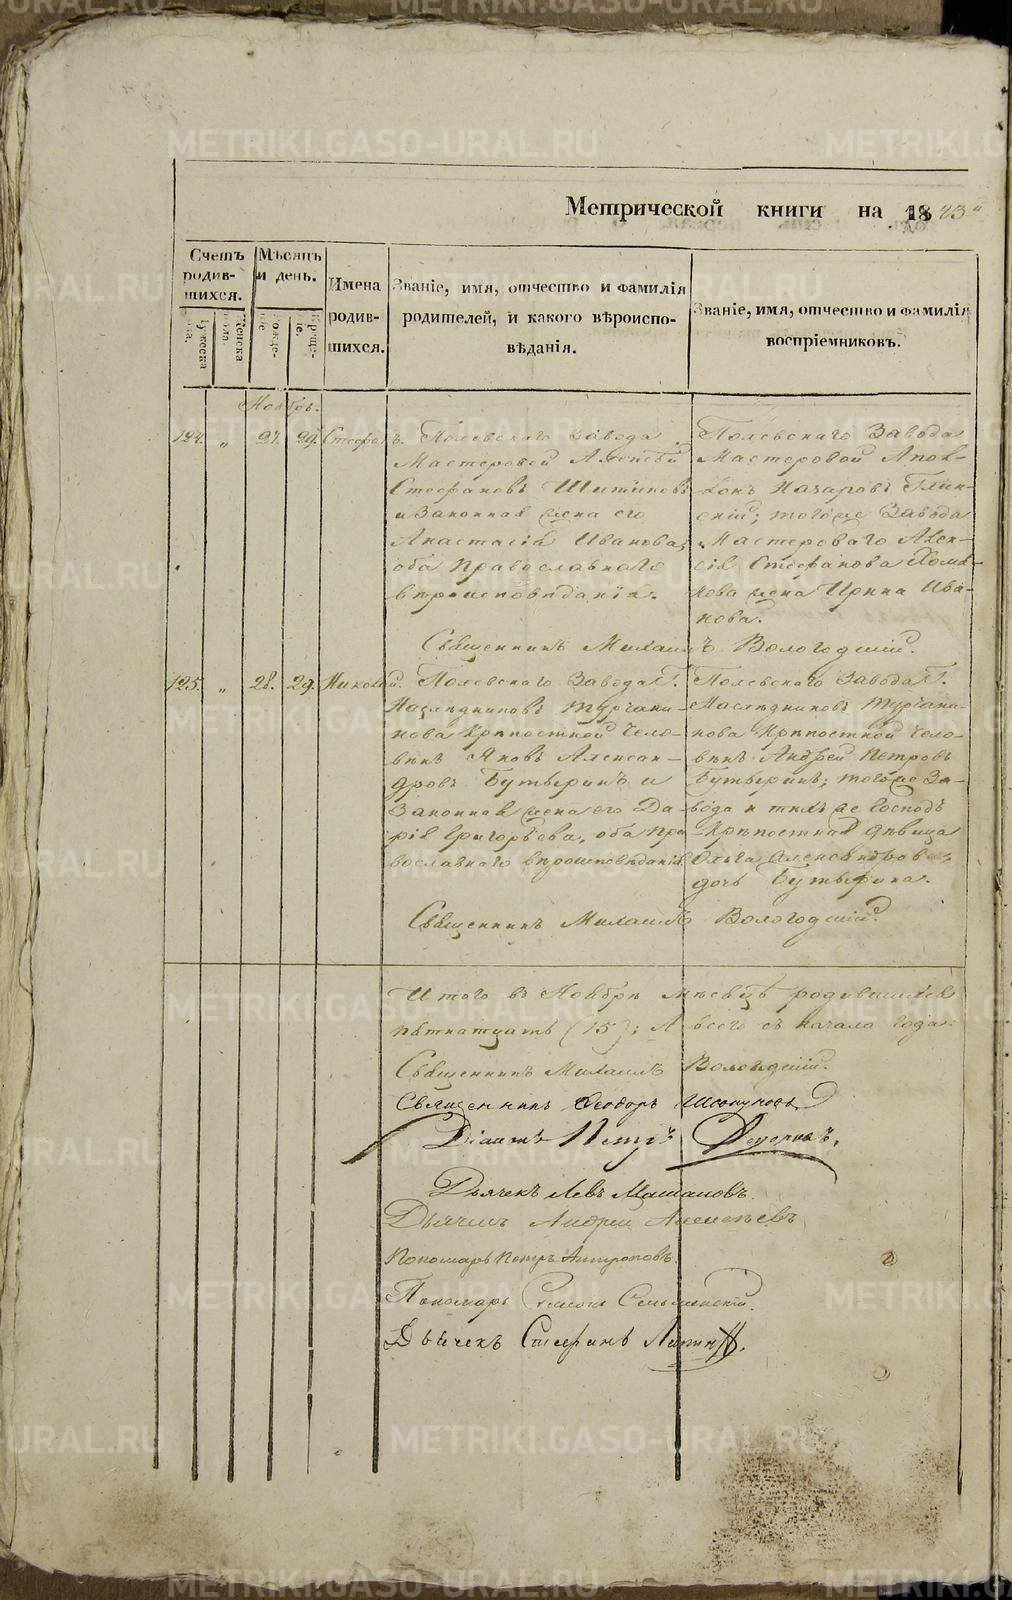 Метрической книги на 1843
Счетъ родив-шихся.
Мѣсяцъ и день.
Имена родив-шихся.
Званіе, имя, отчество и фамилія родителей, и какого вѣроиспо-вѣданія.
Званіе, имя, отчество и фамилія воспріемниковъ.
Ноябрь.
124. „ 27. 29. Стефанъ.
Полевскаго Завода
Мастеровой Алексѣй
Стефановъ
и Законная жена его
Анастасія Иванова,
оба Православнаго
вѣроисповѣданія.
Полевскаго Завода
Мастеровой Апол-
лонъ Назаровъ Глин-
скій; тогоже Завода
Мастероваго Алек-
сія Стефанова
жена Ирина Ива-
нова.
Священникъ Михаилъ Вологодскій.
125. „ 28. 29. Николай.
Полевскаго Завода Г.
Наслѣдниковъ Турчани-
нова Крѣпостной Чело-
вѣкъ Яковъ Алексан-
дровъ Бутыринъ и
Законная жена его Да-
рія Григорьева, оба пра-
вославнаго вѣроисповѣданія.
Полевскаго Завода Г.
Наслѣдниковъ Турчани-
нова Крѣпостной Чело-
вѣкъ Андрей Петровъ
Бутыринъ; тогоже За-
вода и тѣхъ же Господъ
Крѣпостная дѣвица
Ольга Александрова
дочь Бутырина.
Священникъ Михаилъ Вологодскій.
Итого въ Ноябрѣ мѣсяцѣ родившихся
пятнатцать (15); А всего съ начала года
Священникъ Михаилъ Вологодскій.
Священникъ Феодоръ
Діаконъ Петръ
Дьячекъ Левъ
Дьячекъ Андрей Алексѣевъ
Пономарь Петръ Антроповъ.
Пономарь
Дьячекъ Стефанъ
METRIKI.GASO-URAL.RU